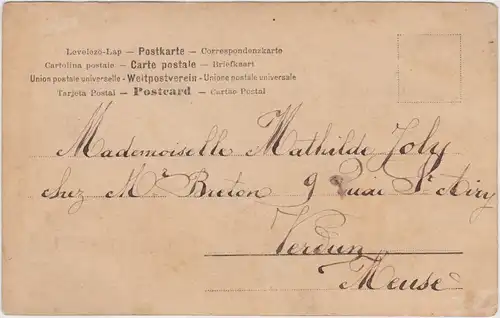 Levelező-Lap – Postkarte – Correspondenzkarte
Cartolina postale – Carte postale – Briefkaart
Union postale universelle - Weltpostverein - Unione postale universale
Tarjeta Postal – Postcard – Cartão Postal
Mademoiselle Mathilde Joly
chez Mr Breton 9 Quai St Airy
Verdun
Meuse